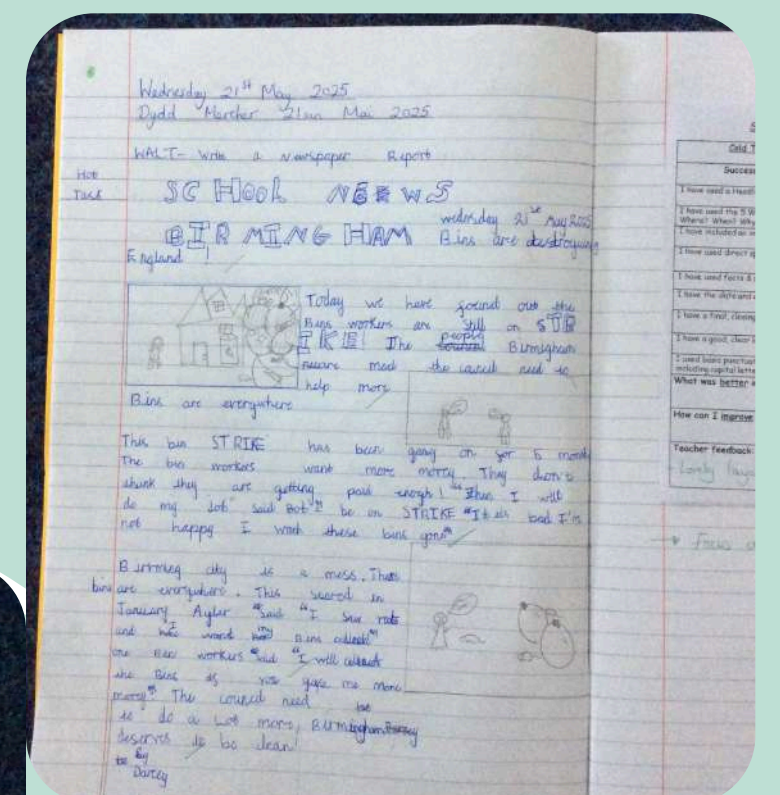 Wednesday 21st May 2025
Dydd Mercher 21ain Mai 2025
WALT- Write a Newspaper Report
Hot
Task
SCHOOL NEWS
BIRMINGHAM
wednesday 21st May 2025
Bins are destroying
England !
Today we have found out the
Bins workers are still on STR
IKE! The people Birmigham
mad the council need to
help more
Bins are everywhere
This bin STRIKE has been going on for 5 month
The bin workers want more money. They don't
think they are getting paid enogh! "Then I will
do my Job" said Bot be on STRIKE "It is bad I'm
not happy I wont these bins gon"
Birming city is a mess. Thats
bins are everywhere. This started in
January Ayler said "I saw rats
and I want my Bins collect"
one Bin workers said "I will collect
the Bins if you gave me more
money" The council need
to do a lot more, Birmingham
deserves to be clean!
by
Darcy
Cold T
Success
I have used a Headl
I have used the 5 W
Where? When? Why
I have included an in
I have used direct sp
I have used facts &
I have the date and
I have a final, closing
I have a good, clear l
I used basic punctuat
including capital lette
What was better
How can I improve
Teacher feedback:
Lovely layo
Focus